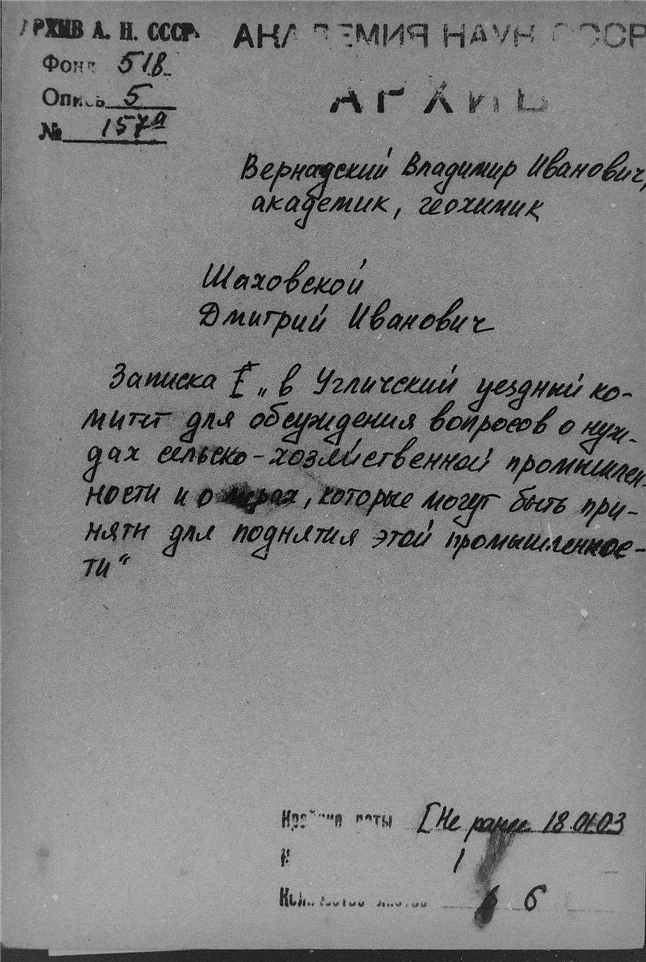 АРХИВ А. Н. СССР
АКАДЕМИЯ НАУК СССР
Фонд 518
Опись 5
№ 157а
АРХИВ
Вернадский Владимир Иванович,
академик, геохимик
Шаховской
Дмитрий Иванович
Записка I „ в Угличский уездный ко-
митет для обсуждения вопросов о нуж-
дах сельско-хозяйственной промышлен-
ности и о мерах, которые могут быть при-
няты для поднятия этой промышленнос-
ти“
Крайние даты [Не ранее 18.01.03
1
Количество листов 6